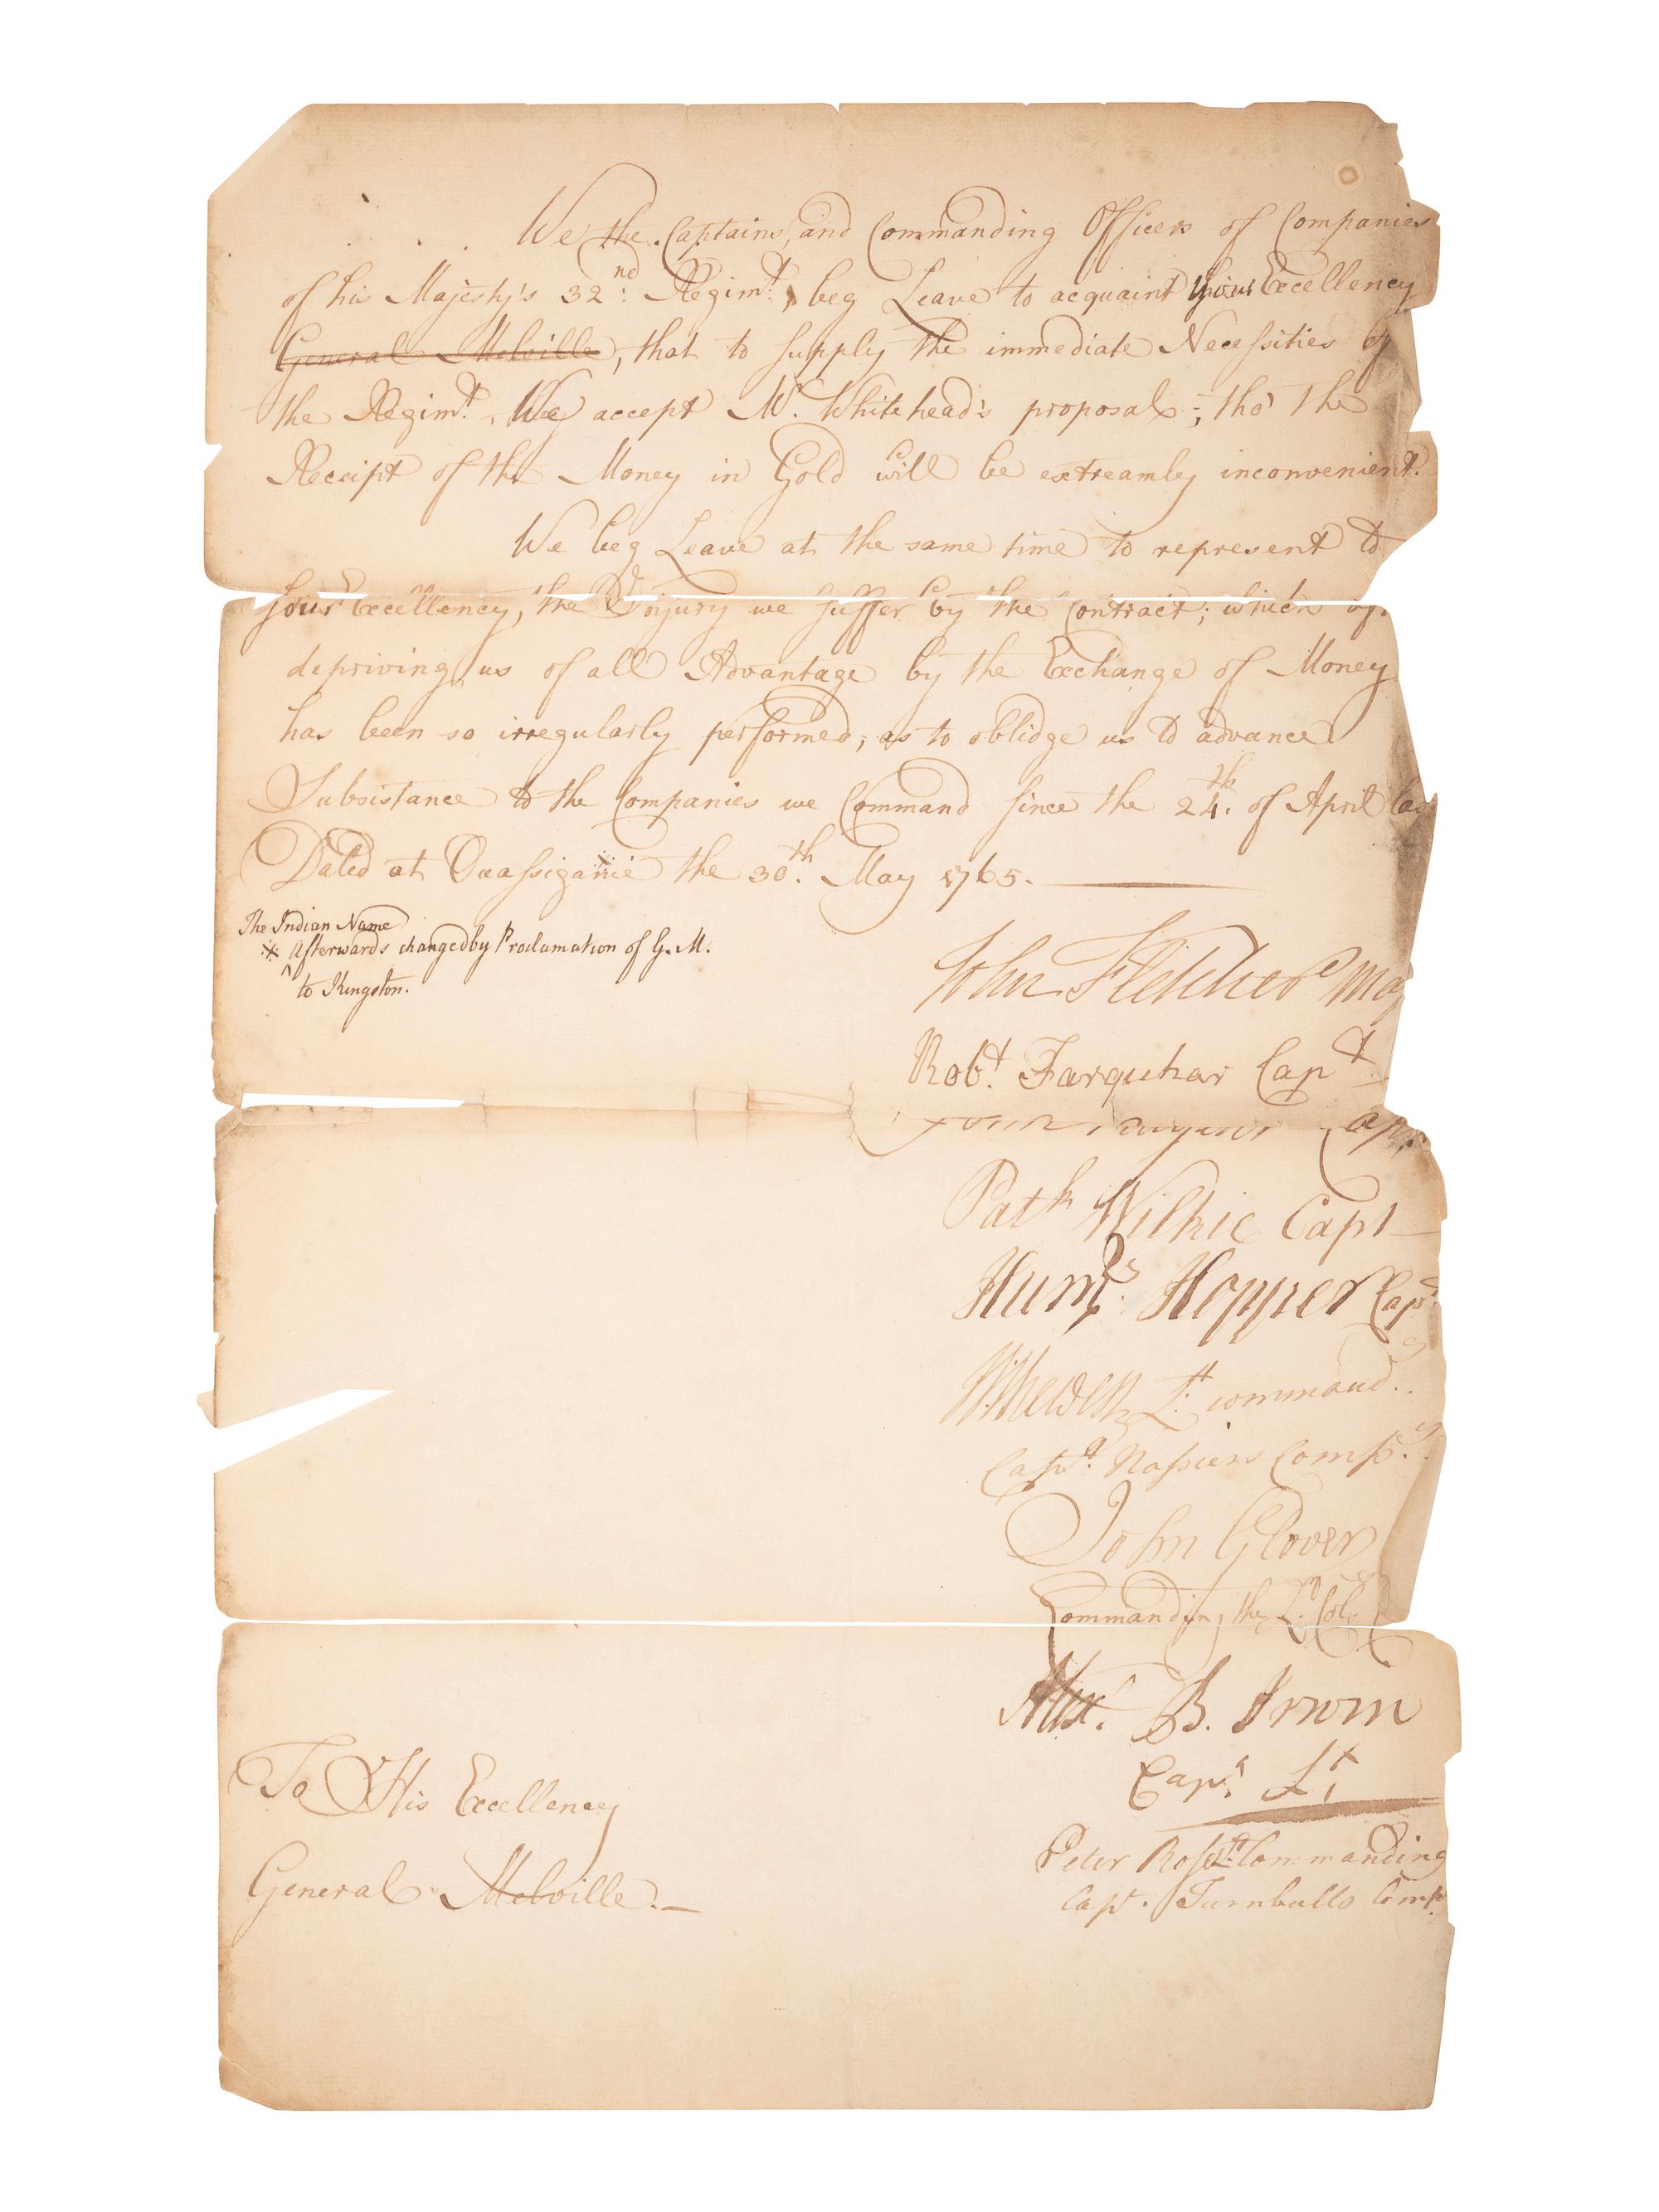 We the Captains, and Commanding Officers of Companies
of his Majesty's 32nd. Regimt. beg Leave to acquaint Your Excellency
General Melville, that to supply the immediate Necessities of
the Regimt. We accept Mr. Whitehead's proposal; tho' the
Receipt of the Money in Gold will be extreamly inconvenient.
We beg Leave at the same time to represent to
Your Excellency, the Injury we suffer by the Contract; which
depriving us of all Advantage by the Exchange of Money
has been so irregularly performed, as to oblidge us to advance
Subsistance to the Companies we Command since the 24th. of April
Dated at Ouassiganie the 30th. May 1765.
The Indian Name
Afterwards changed by Proclamation of G. M.
to Kingston.
John Fletcher Maj
Robt. Farquhar Capt
Capt.
Patk Wilkie Capt
Humps. Hopper Capt.
Lt. command.
Capt. Napiers Compy.
John Glover
Commanding the Lt. Col.
Alexr. B. Irwin
Capt. Lt.
Peter Ross Lt. Commanding
Capt. Turnbulls Comp
To His Excellency
General Melville.